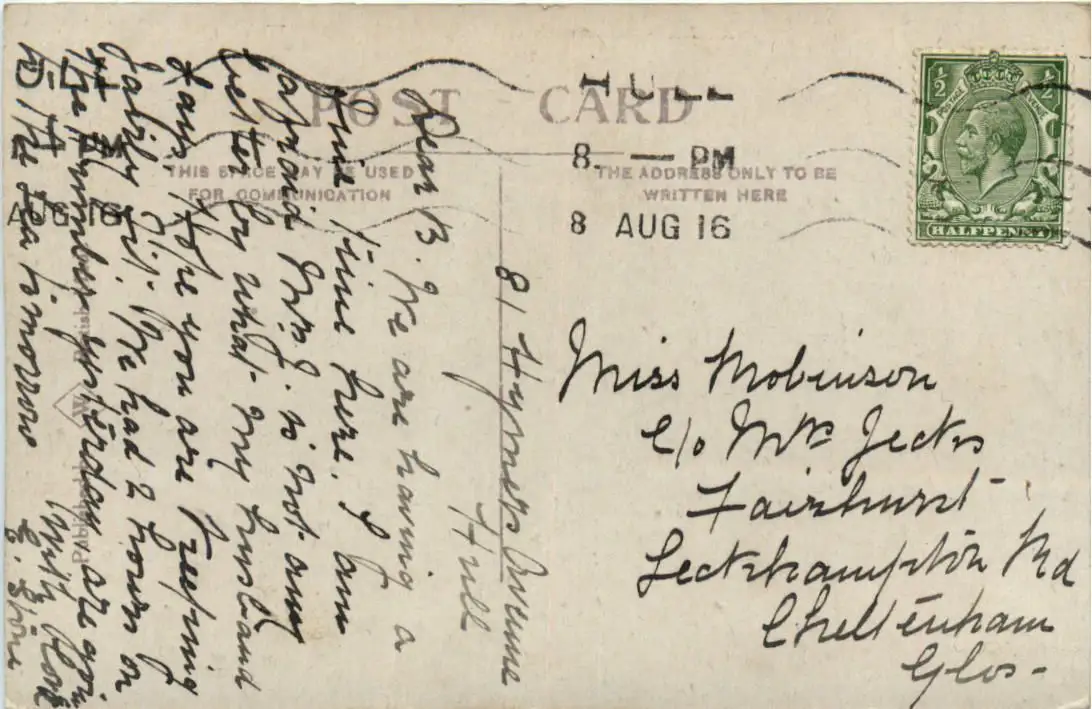 POST CARD
THIS SPACE MAY BE USED
FOR COMMUNICATION
THE ADDRESS ONLY TO BE
WRITTEN HERE
HULL
8. — PM
8 AUG 16
½ ½
POSTAGE REVENUE
HALFPENNY
AUG 16
81 Hymers Avenue
Hull
Dear B. We are having a
fine time here. I am
afraid Mrs J. is not any
better by what my husband
says. Hope you are keeping
fairly fit. We had 2 hours on
the Humber yesterday are goin
to the sea tomorrow
With love
E.
Miss Robinson
c/o Mrs Jecks
Fairhurst
Leckhampton Rd
Cheltenham
Glos-
Published
W